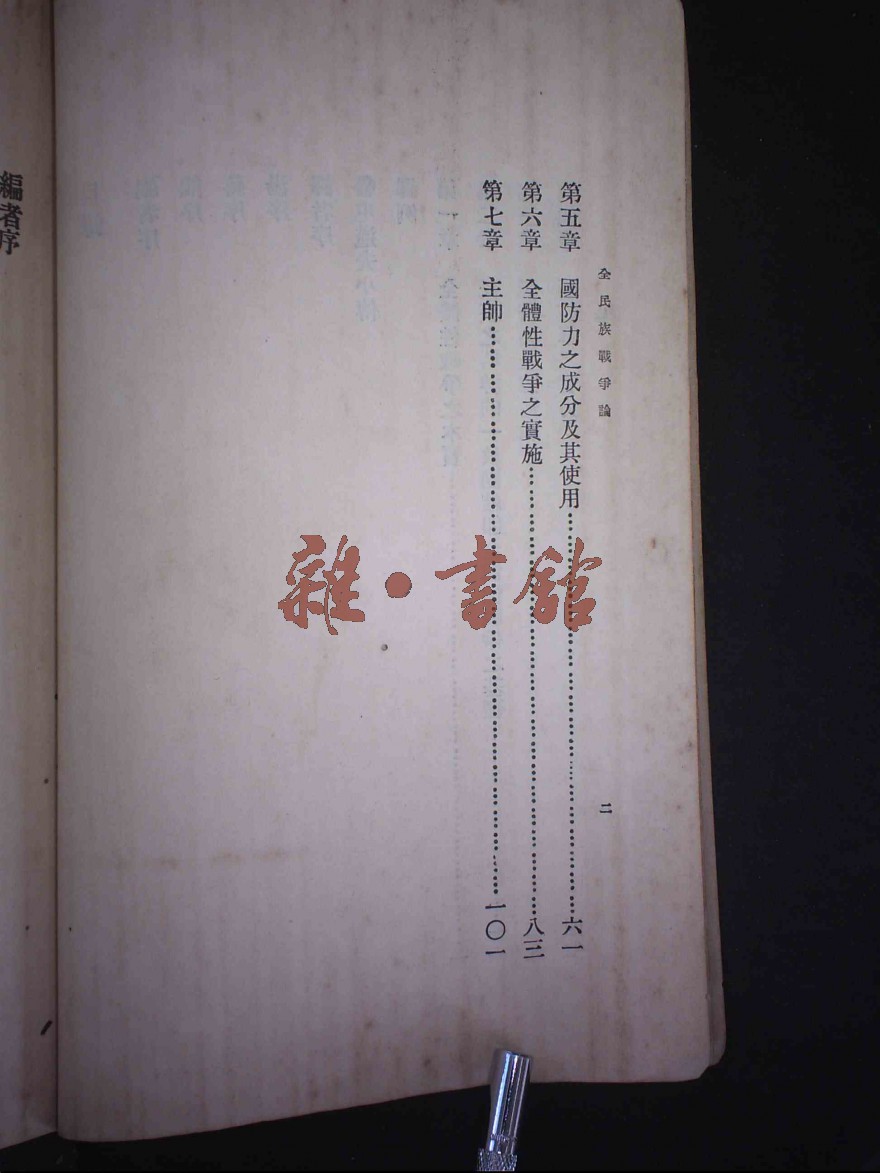 全民族戰爭論
二
第五章　國防力之成分及其使用……六一
第六章　全體性戰爭之實施……八三
第七章　主帥……一〇一
編者序
雜・書館